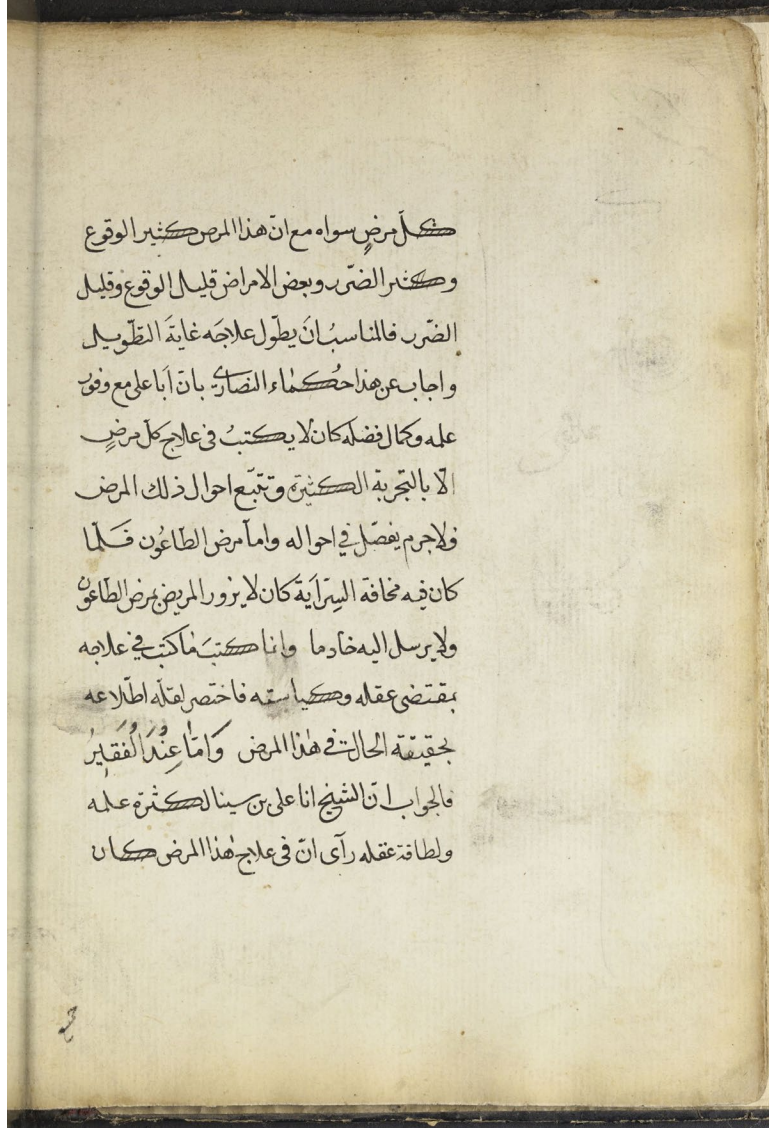 كلّ مرضٍ سواه مع انّ هذا المرض كثير الوقوع
وكثير الضّرر وبعض الامراض قليل الوقوع وقليل
الضّرر فالمناسبُ انَ يطّول علاجَه غايةَ التطّويل
واجاب عن هذا حُكماء النصاریٰ بانّ اَبا علی مع وفور
علمه وكمال فضله كان لا يكتبُ فی علاج كلّ مرضٍ
الّا بالتجربة الكثيرة وتتبّع احوال ذلك المرض
ولاجرم يفصّل فی احواله وامّا مرض الطّاعُون فَلمّا
كان فيه مخافة السِّرَايَة كان لا يزور المريض بمرض الطّاعون
ولا يرسل اليه خادما وانما كتبَ ما كتب فی علاجه
بمقتضی عقله وكياسته فاختصر لقلّة اطّلاعه
بحقيقة الحال فی هٰذا المرض وَامّا عِنْدَ الْفَقيرُ
فالجواب انّ الشيخ ابا علی بن سينا لكثرة علمه
ولطافة عقله رآی انّ فی علاج هٰذا المرض كان